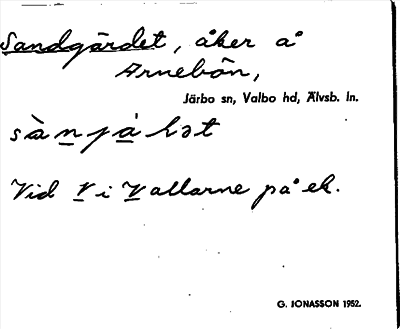 Sandgärdet, åker å
Arnebön,
Järbo sn, Valbo hd, Älvsb. ln.
sàn̲jå̲lət
Vid V i Vallarne på ek.
G. JONASSON 1952.